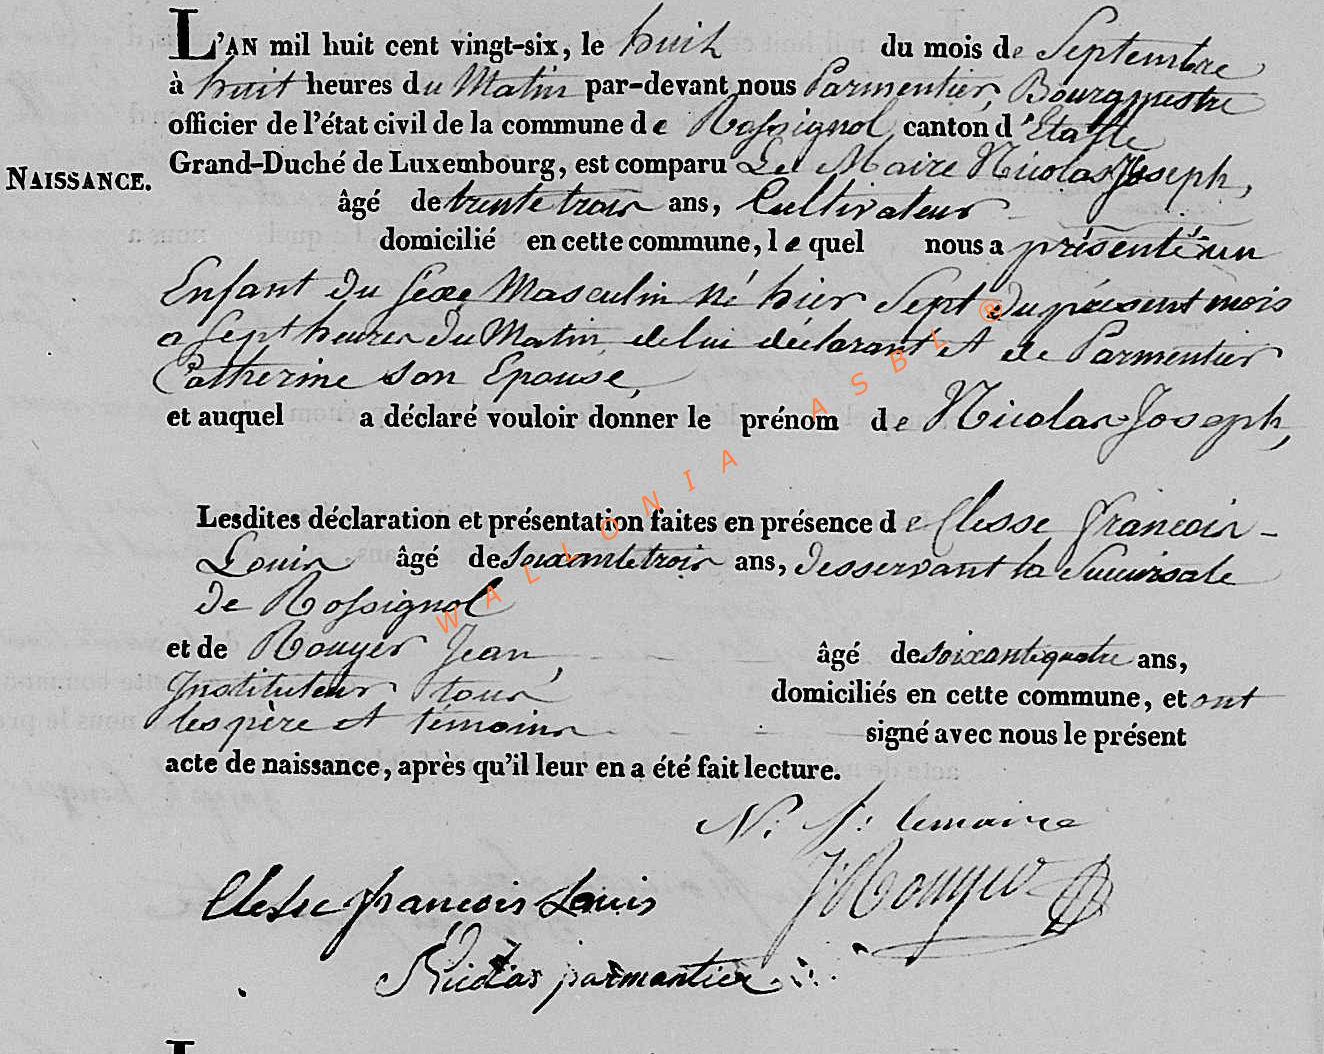 L'AN mil huit cent vingt-six, le huit du mois de Septembre
à huit heures du Matin par-devant nous Parmentier, Bourgmestre
officier de l'état civil de la commune de Rossignol canton d'Etalle
Grand-Duché de Luxembourg, est comparu Le Maire Nicolas Joseph,
NAISSANCE.
âgé de trente trois ans, Cultivateur
domicilié en cette commune, le quel nous a présenté un
Enfant du Sexe Masculin né hier Sept du présent mois
a Sept heures du Matin, de lui déclarant et de Parmentier
Catherine son Epouse,
et auquel a déclaré vouloir donner le prénom de Nicolas Joseph,
Lesdites déclaration et présentation faites en présence de Clesse Francois
Louis âgé de soixante trois ans, desservant la Sucursale
de Rossignol
et de Rouyer Jean, âgé de soixante quatre ans,
Instituteur tous domiciliés en cette commune, et ont
les père et témoins signé avec nous le présent
acte de naissance, après qu'il leur en a été fait lecture.
N. J: lemaire
J Rouyer
Clesse francois Louis
Nicolas parmantier
WALLONIA ASBL ®